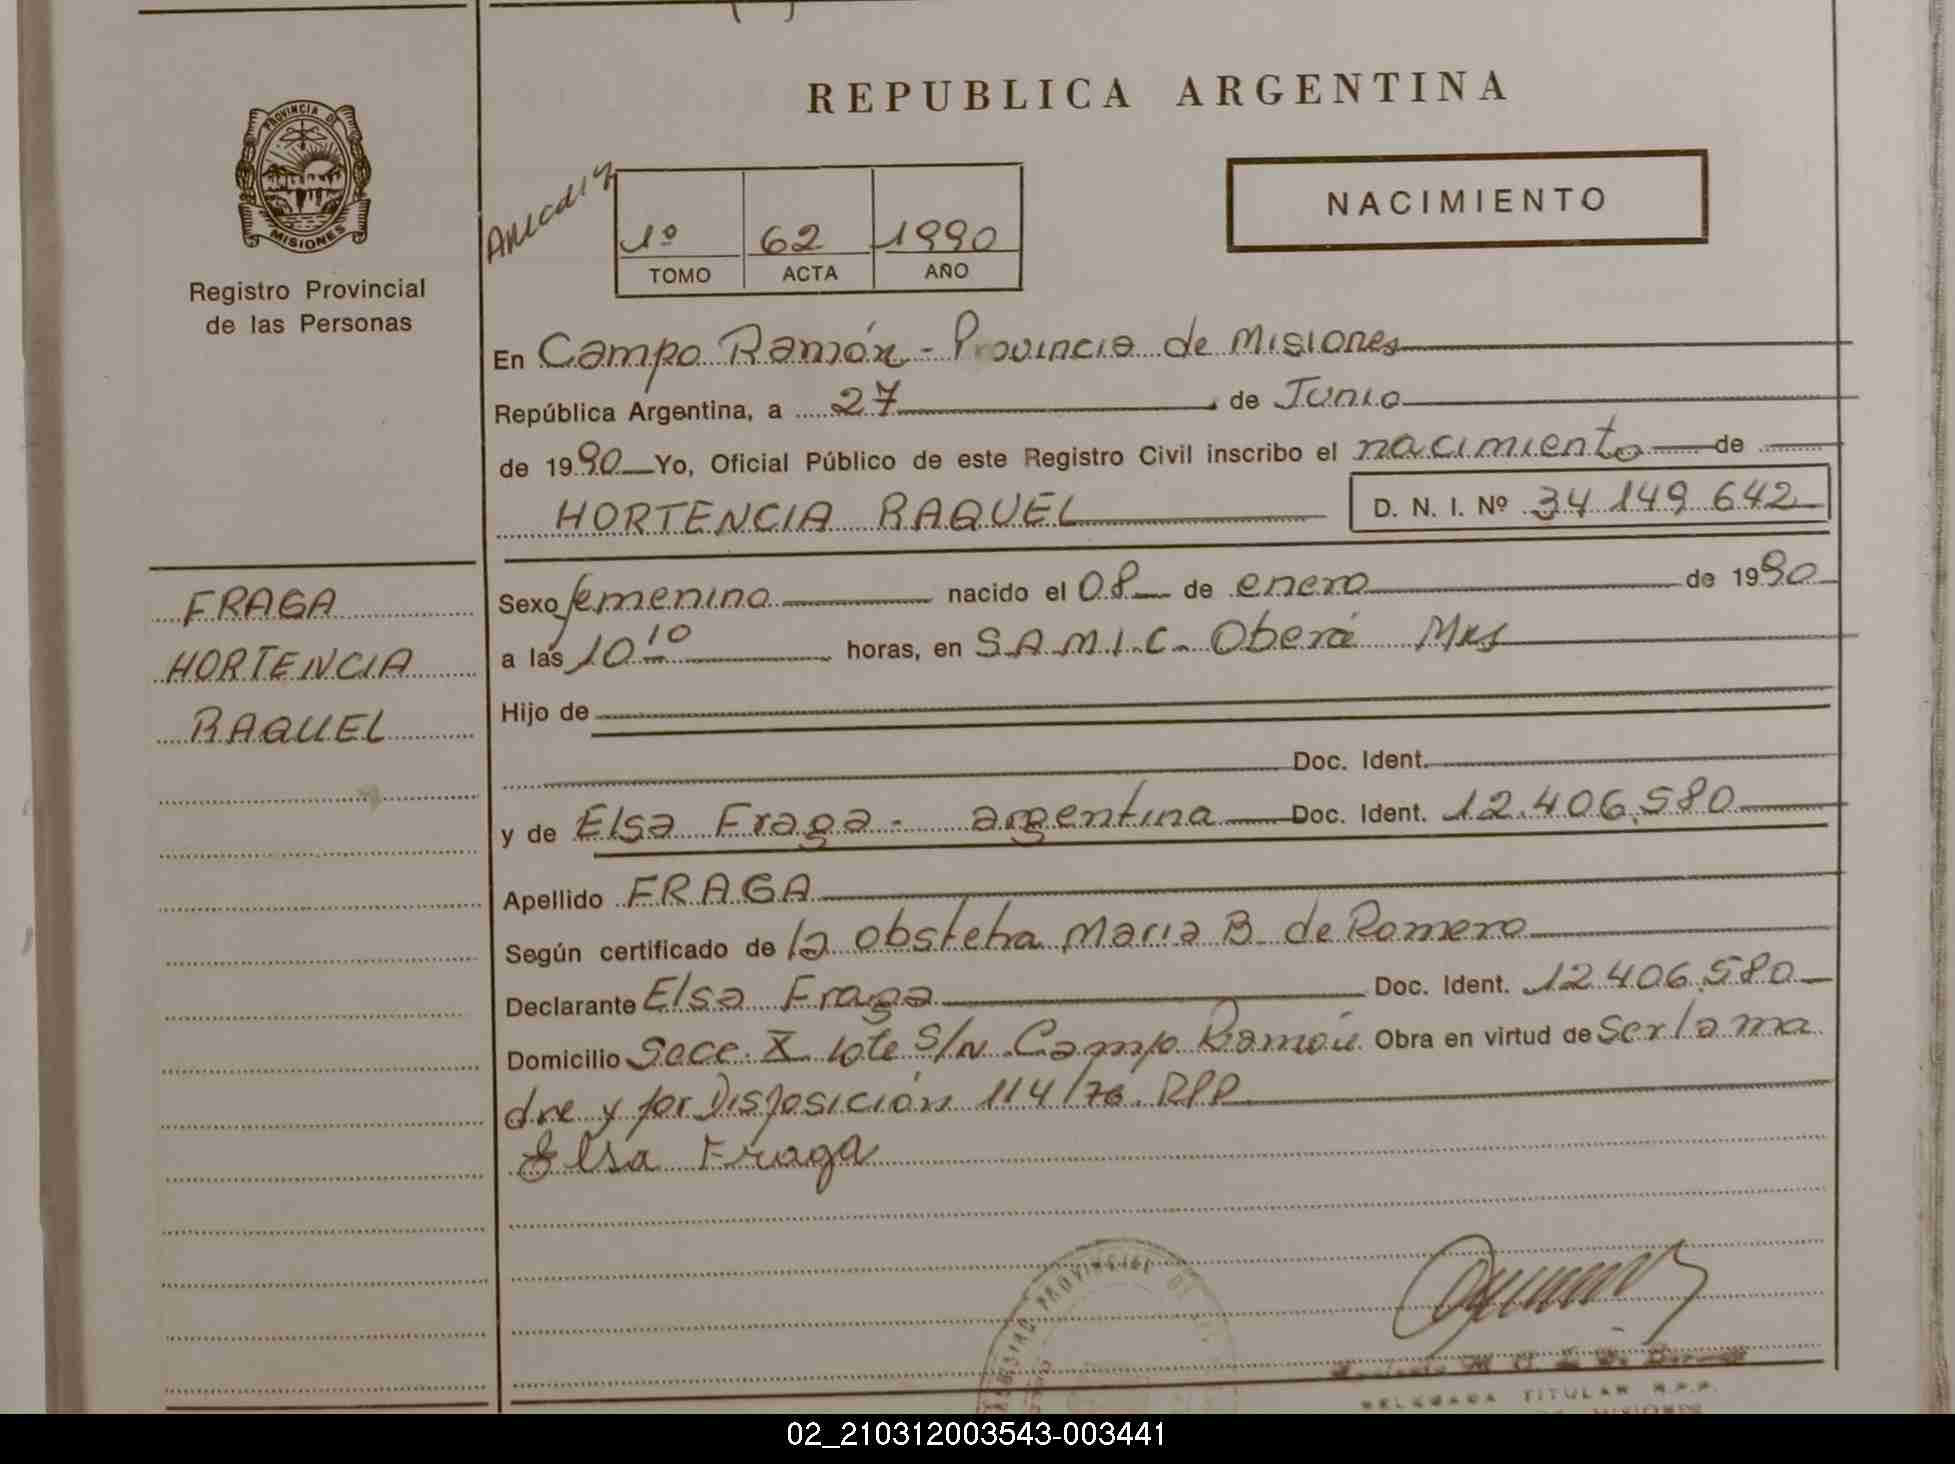 REPUBLICA ARGENTINA
PROVINCIA DE
MISIONES
Registro Provincial
de las Personas
1º 62 1990
TOMO ACTA AÑO
NACIMIENTO
En Campo Ramón - Provincia de Misiones
República Argentina, a 27 de Junio
de 1990 Yo, Oficial Público de este Registro Civil inscribo el nacimiento de
HORTENCIA RAQUEL D. N. I. Nº 34 149 642
FRAGA
HORTENCIA
RAQUEL
Sexo femenino nacido el 08 de enero de 1990
a las 10 10 horas, en S.A.M.I.C. Oberá Mns
Hijo de
Doc. Ident.
y de Elsa Fraga - argentina Doc. Ident. 12.406.580
Apellido FRAGA
Según certificado de la obstetra Maria B. de Romero
Declarante Elsa Fraga Doc. Ident. 12.406.580
Domicilio Secc. X lote S/N Campo Ramón Obra en virtud de ser la ma
dre y por Disposición 114/76 RPP
Elsa Fraga
PROVINCIAL DE
DELEGADA TITULAR R.P.P.
MISIONES
02_210312003543-003441